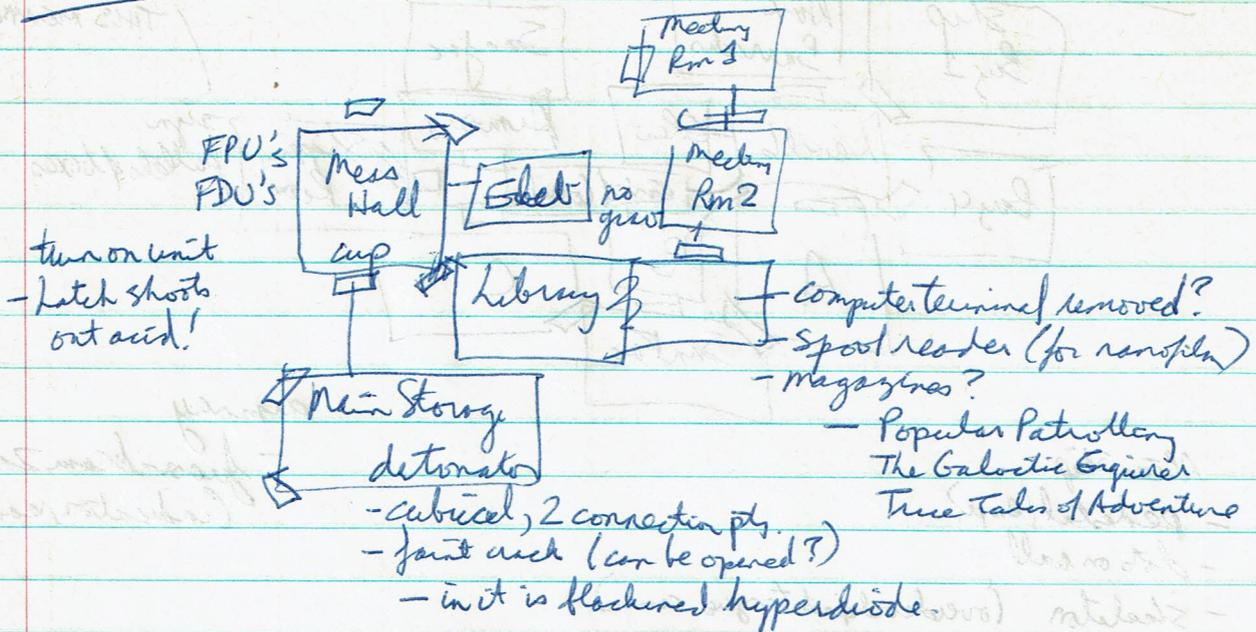 Meeting
Rm 1
C
Meeting
Rm 2
FPU's
FDU's
Mess
Hall
cup
no
grav
turn on unit
- hatch shoots
out acid!
Library
- computer terminal removed?
- spool reader (for nanofilm)
- magazines?
- Popular Patrolling
The Galactic Enquirer
True Tales of Adventure
Main Storage
detonator
- cubical, 2 connection pts.
- faint crack (can be opened?)
- in it is blackened hyperdiode.